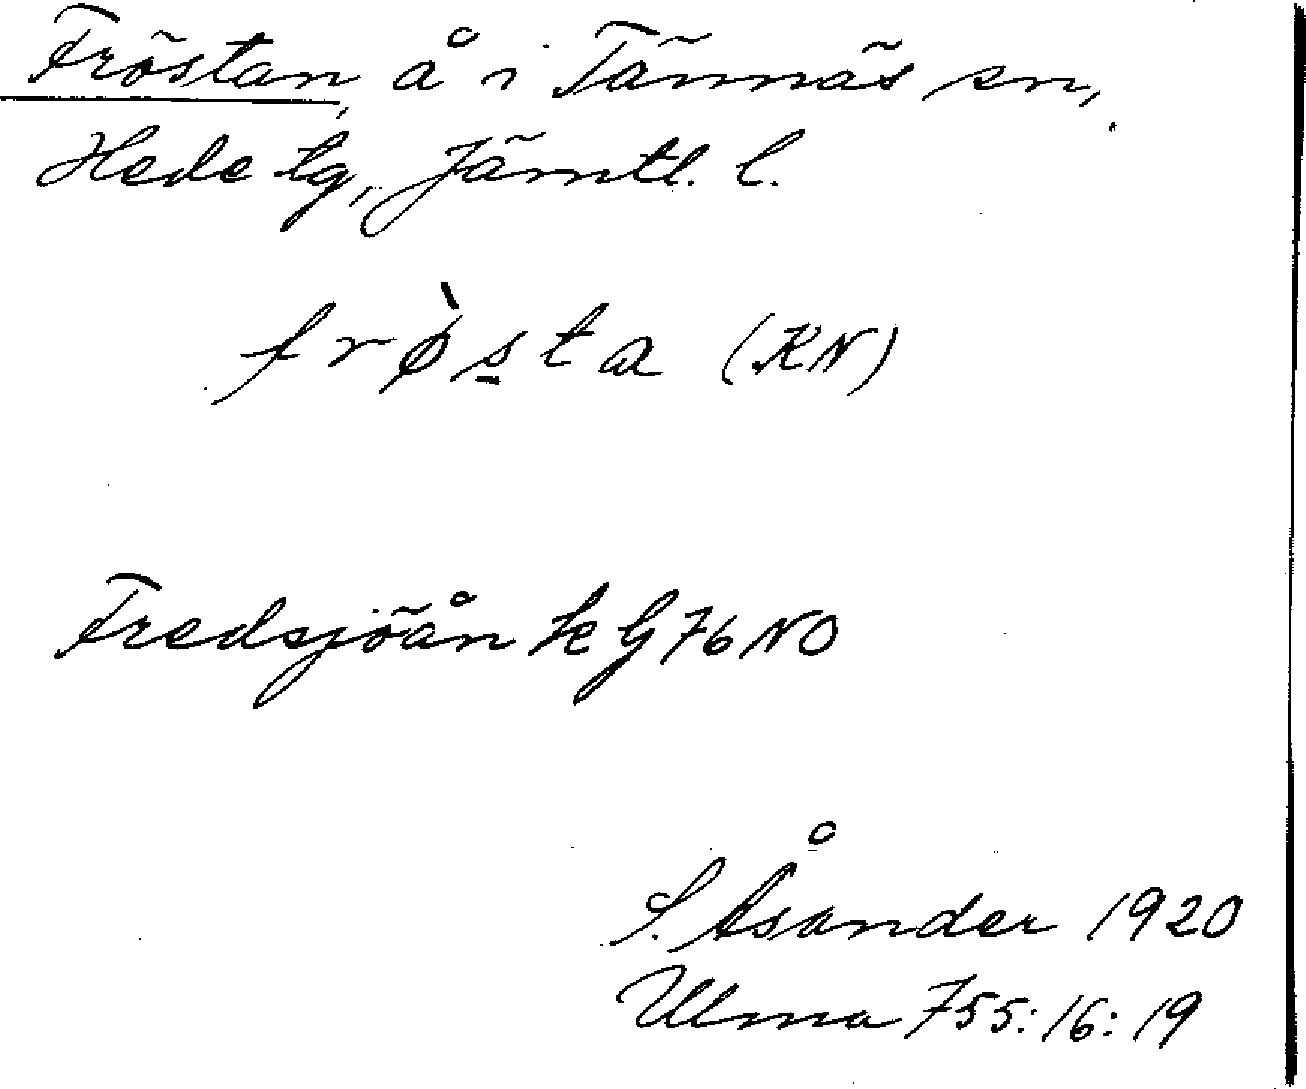 Fröstan, å i Tännäs sn,
Hede tg, Jämtl. l.
frø̀s̱ta (KN)
Fredsjöån k G 76 NO
S. Åsander 1920
Ulma 755:16:19